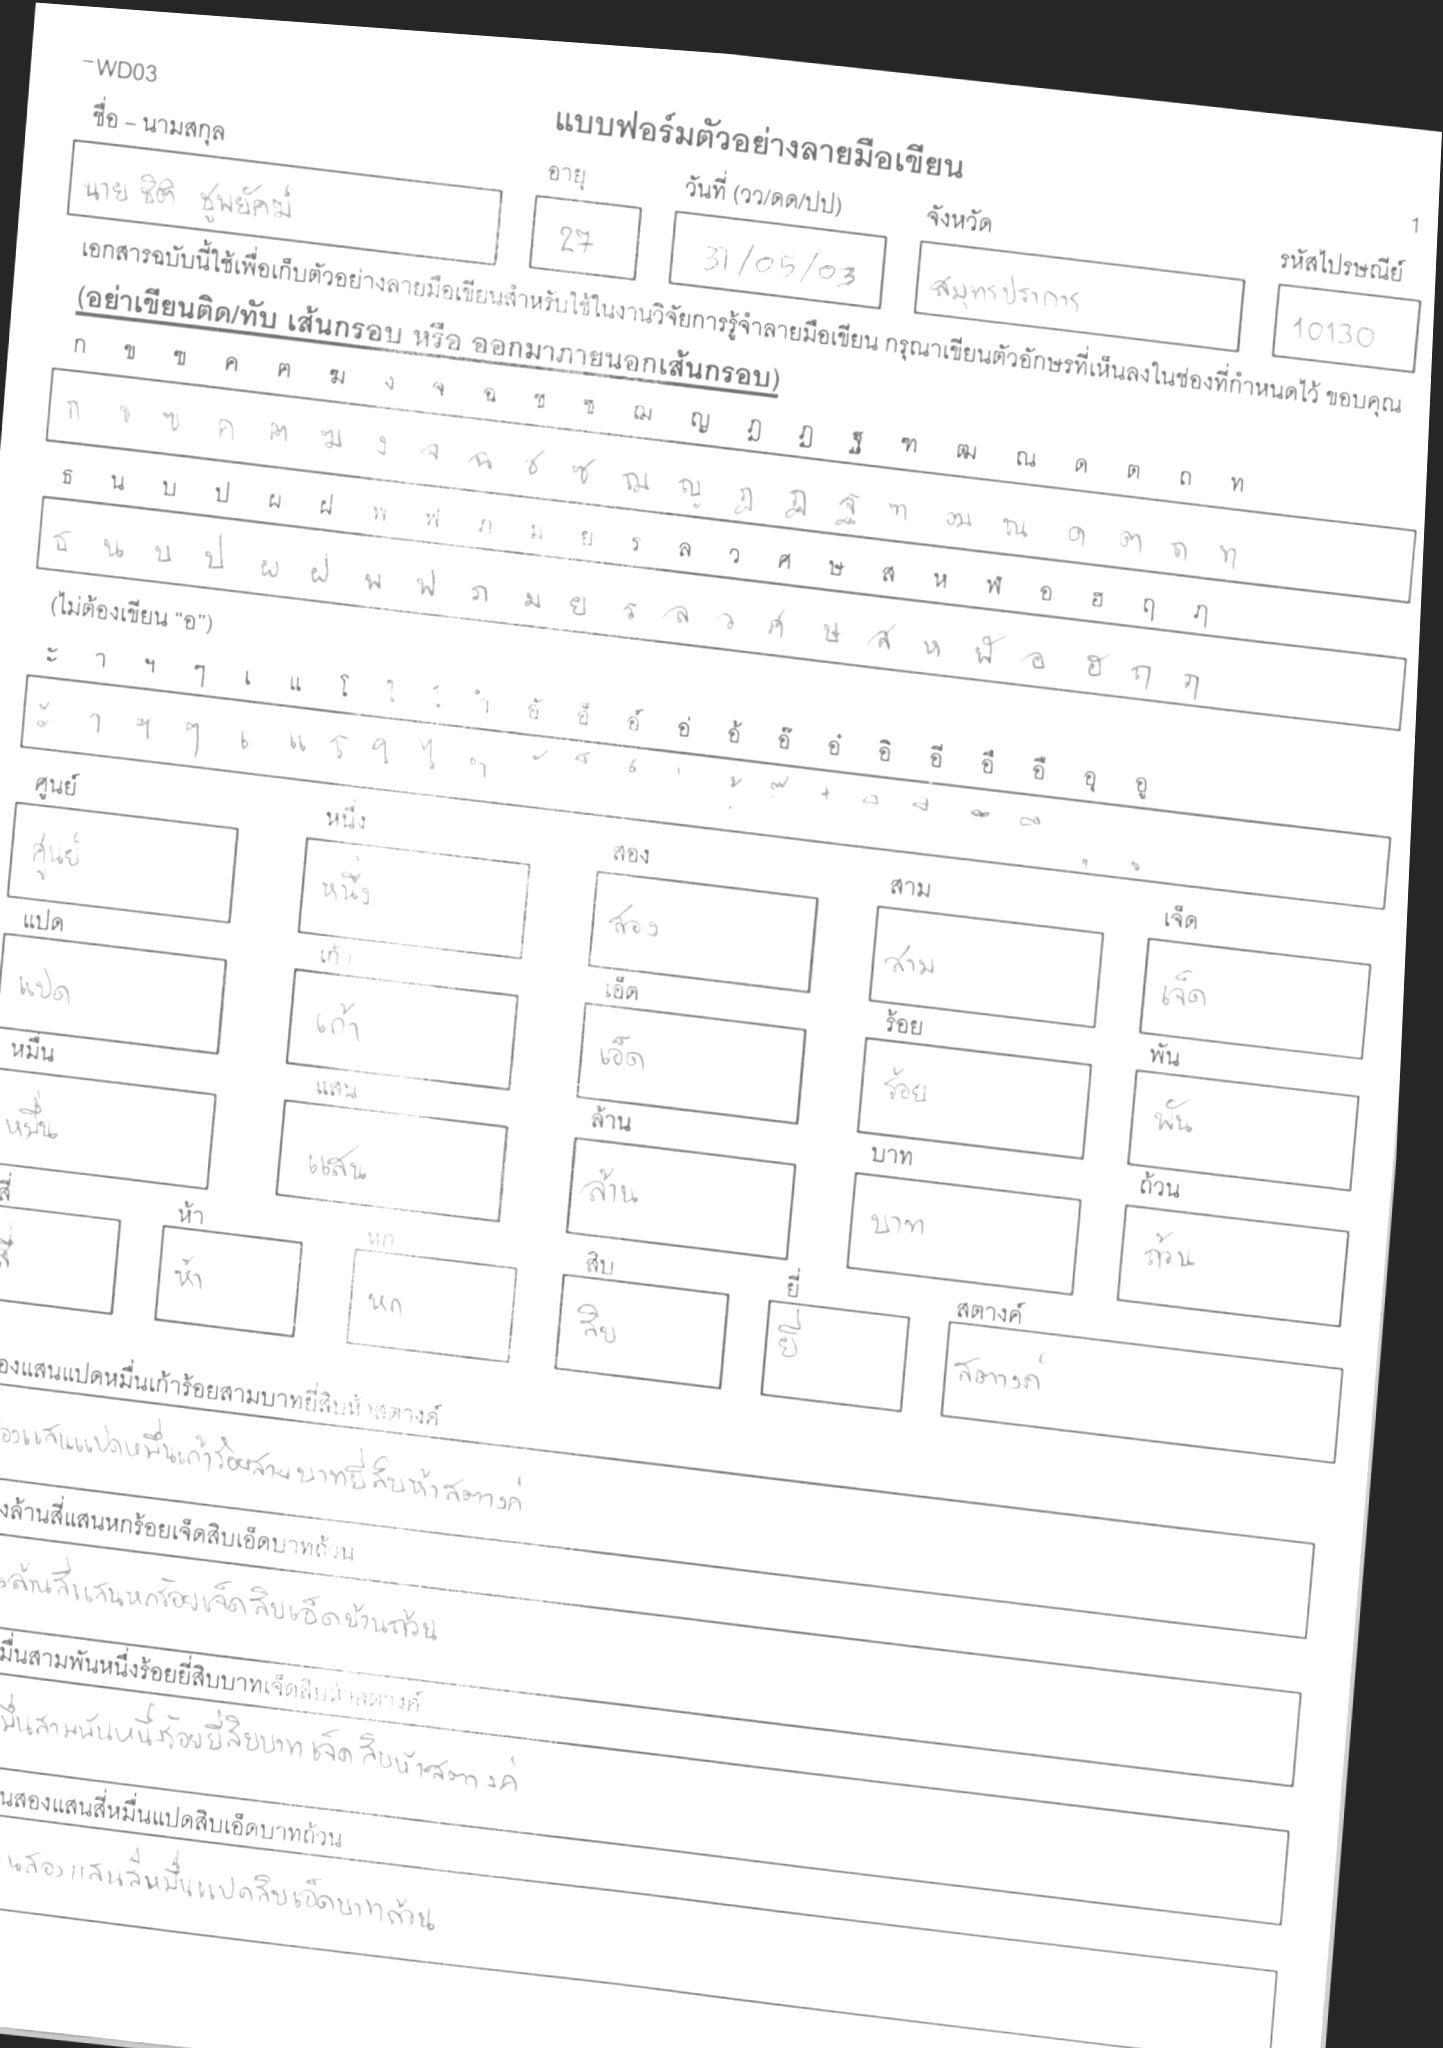 WD03
แบบฟอร์มตัวอย่างลายมือเขียน
1
ชื่อ – นามสกุล อายุ วันที่ (วว/ดด/ปป) จังหวัด รหัสไปรษณีย์
นาย ชิติ ชูพยัคฆ์ 27 31/05/03 สมุทรปราการ 10130
เอกสารฉบับนี้ใช้เพื่อเก็บตัวอย่างลายมือเขียนสำหรับใช้ในงานวิจัยการรู้จำลายมือเขียน กรุณาเขียนตัวอักษรที่เห็นลงในช่องที่กำหนดไว้ ขอบคุณ
(อย่าเขียนติด/ทับ เส้นกรอบ หรือ ออกมาภายนอกเส้นกรอบ)
ก ข ฃ ค ฅ ฆ ง จ ฉ ช ซ ฌ ญ ฎ ฏ ฐ ฑ ฒ ณ ด ต ถ ท
ก ข ฃ ค ฅ ฆ ง จ ฉ ช ซ ฌ ญ ฎ ฏ ฐ ฑ ฒ ณ ด ต ถ ท
ธ น บ ป ผ ฝ พ ฟ ภ ม ย ร ล ว ศ ษ ส ห ฬ อ ฮ ฤ ฦ
ธ น บ ป ผ ฝ พ ฟ ภ ม ย ร ล ว ศ ษ ส ห ฬ อ ฮ ฤ ฦ
(ไม่ต้องเขียน “อ”)
ะ า ฯ ๆ เ แ โ ใ ไ ำ อั อ็ อ์ อ่ อ้ อ๊ อ๋ อิ อี อึ อื อุ อู
ะ า ฯ ๆ เ แ โ ใ ไ ำ ั ็ ์ ่ ้ ๊ ๋ ิ ี ึ ื ุ ู
ศูนย์ หนึ่ง สอง สาม เจ็ด
ศูนย์ หนึ่ง สอง สาม เจ็ด
แปด เก้า เอ็ด ร้อย พัน
แปด เก้า เอ็ด ร้อย พัน
หมื่น แสน ล้าน บาท ถ้วน
หมื่น แสน ล้าน บาท ถ้วน
สี่ ห้า หก สิบ ยี่ สตางค์
สี่ ห้า หก สิบ ยี่ สตางค์
องแสนแปดหมื่นเก้าร้อยสามบาทยี่สิบห้าสตางค์
องแสนแปดหมื่นเก้าร้อยสามบาทยี่สิบห้าสตางค์
งล้านสี่แสนหกร้อยเจ็ดสิบเอ็ดบาทถ้วน
งล้านสี่แสนหกร้อยเจ็ดสิบเอ็ดบ้านถ้วน
มื่นสามพันหนึ่งร้อยยี่สิบบาทเจ็ดสิบห้าสตางค์
มื่นสามพันหนึ่งร้อยยี่สิบบาทเจ็ดสิบห้าสตางค์
นสองแสนสี่หมื่นแปดสิบเอ็ดบาทถ้วน
นสองแสนสี่หมื่นแปดสิบเอ็ดบาทล้วน